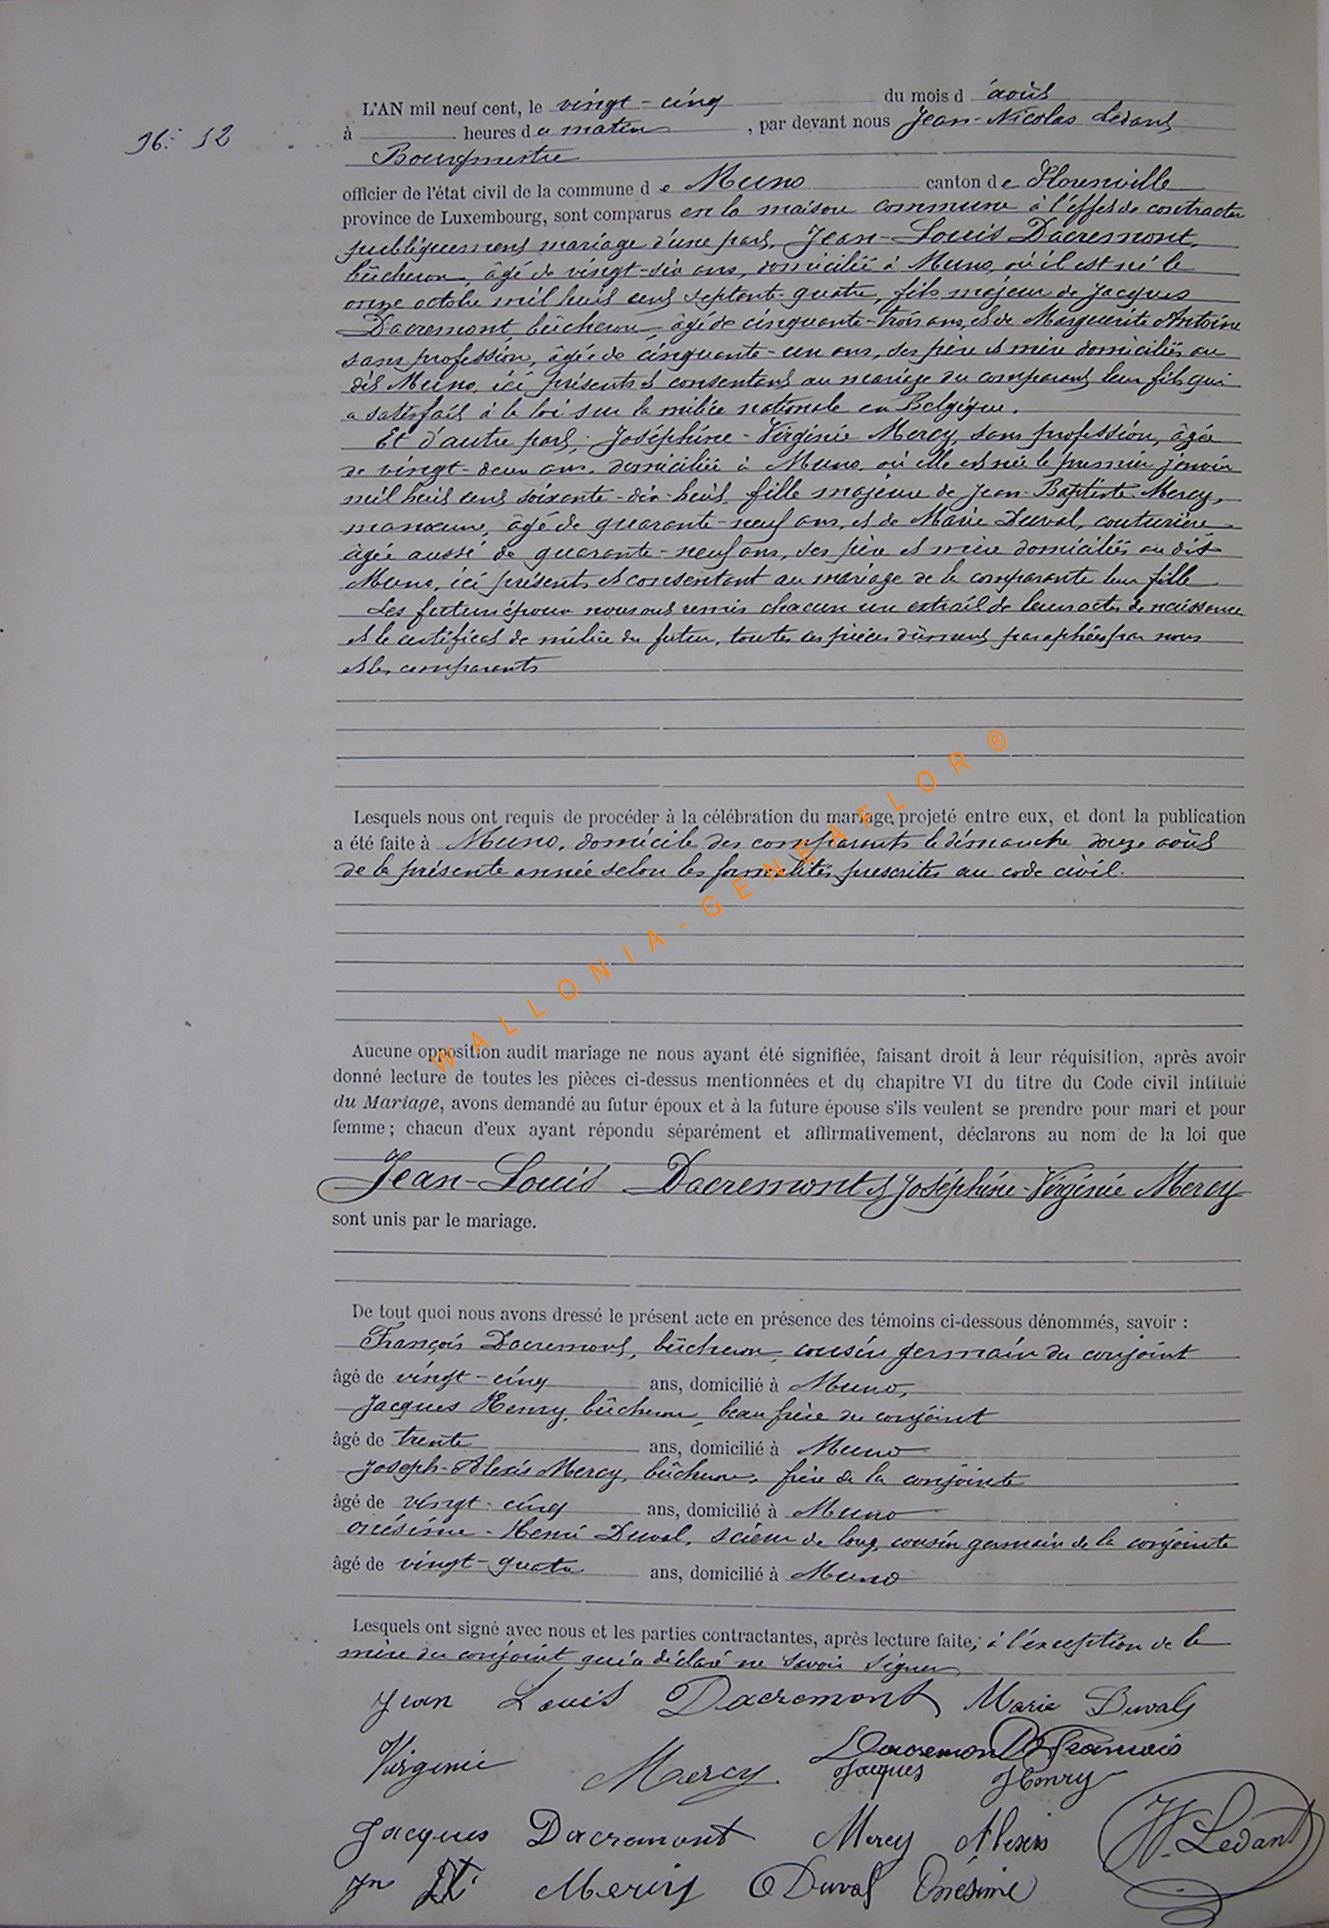 L'AN mil neuf cent, le vingt-cinq du mois d'août
N° 12
à heures du matin, par devant nous Jean-Nicolas Ledant
Bourgmestre
officier de l'état civil de la commune de Muno canton de Florenville
province de Luxembourg, sont comparus en la maison commune à l'effet de contracter
publiquement mariage d'une part, Jean-Louis Dacremont,
bûcheron, âgé de vingt-six ans, domicilié à Muno, où il est né le
onze octobre mil huit cent septante-quatre, fils majeur de Jacques
Dacremont, bûcheron, âgé de cinquante-trois ans, et de Marguerite Antoine
sans profession, âgée de cinquante-un ans, ses père et mère domiciliés au
dit Muno, ici présents et consentant au mariage du comparant leur fils qui
a satisfait à la loi sur la milice nationale en Belgique.
Et d'autre part, Joséphine-Virginie Mercy, sans profession, âgée
de vingt-deux ans, domiciliée à Muno, où elle est née le premier janvier
mil huit cent soixante-dix-huit, fille majeure de Jean-Baptiste Mercy,
manœuvre, âgé de quarante-neuf ans, et de Marie Duval, couturière
âgée aussi de quarante-neuf ans, ses père et mère domiciliés au dit
Muno, ici présents et consentant au mariage de la comparante leur fille
Les futurs époux nous ont remis chacun un extrait de leur acte de naissance
et le certificat de milice du futur, toutes ces pièces dûment paraphées par nous
et les comparants
Lesquels nous ont requis de procéder à la célébration du mariage projeté entre eux, et dont la publication
a été faite à Muno, domicile des comparants le dimanche douze août
de la présente année selon les formalités prescrites au code civil.
WALLONIA-GENEAFLOR®
Aucune opposition audit mariage ne nous ayant été signifiée, faisant droit à leur réquisition, après avoir
donné lecture de toutes les pièces ci-dessus mentionnées et du chapitre VI du titre du Code civil intitulé
du Mariage, avons demandé au futur époux et à la future épouse s'ils veulent se prendre pour mari et pour
femme; chacun d'eux ayant répondu séparément et affirmativement, déclarons au nom de la loi que
Jean-Louis Dacremont et Joséphine-Virginie Mercy
sont unis par le mariage.
De tout quoi nous avons dressé le présent acte en présence des témoins ci-dessous dénommés, savoir :
François Dacremont, bûcheron, cousin germain du conjoint
âgé de vingt-cinq ans, domicilié à Muno,
Jacques Henry, bûcheron, beau frère du conjoint
âgé de trente ans, domicilié à Muno
Joseph-Alexis Mercy, bûcheron, frère de la conjointe
âgé de vingt-cinq ans, domicilié à Muno
Onésime-Henri Duval, scieur de long, cousin germain de la conjointe
âgé de vingt-quatre ans, domicilié à Muno
Lesquels ont signé avec nous et les parties contractantes, après lecture faite, à l'exception de la
mère du conjoint qui a déclaré ne savoir signer
Jean Louis Dacremont Marie Duval
Virginie Mercy Dacremont François
Jacques Henry
Jacques Dacremont Mercy Alexis
Jn Bt Mercy Duval Onésime
N. Ledant